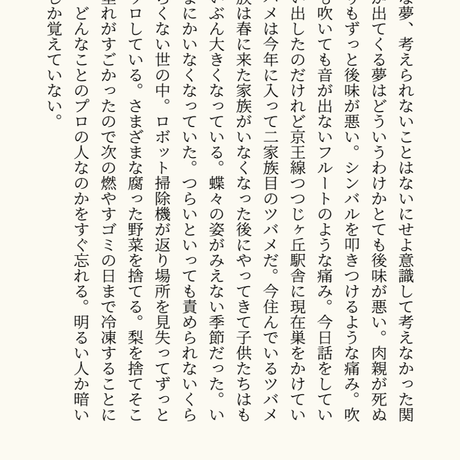 な夢、考えられないことはないにせよ意識して考えなかった関
が出てくる夢はどういうわけかとても後味が悪い。肉親が死ぬ
りもずっと後味が悪い。シンバルを叩きつけるような痛み。吹
も吹いても音が出ないフルートのような痛み。今日話をしてい
い出したのだけれど京王線つつじヶ丘駅舎に現在巣をかけてい
バメは今年に入って二家族目のツバメだ。今住んでいるツバメ
族は春に来た家族がいなくなった後にやってきて子供たちはも
いぶん大きくなっている。蝶々の姿がみえない季節だった。い
まにかいなくなっていた。つらいといっても責められないくら
らくない世の中。ロボット掃除機が返り場所を見失ってずっと
ロしている。さまざまな腐った野菜を捨てる。梨を捨てそこ
垂れがすごかったので次の燃やすゴミの日まで冷凍することに
どんなことのプロの人なのかをすぐ忘れる。明るい人か暗い
しか覚えていない。